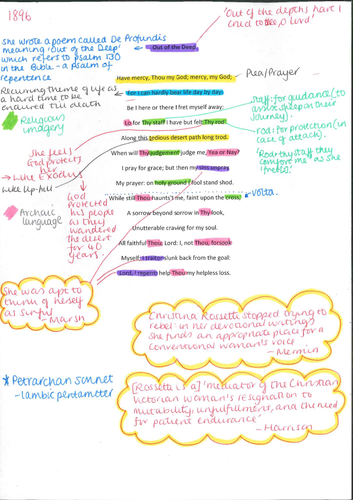 1896
'Out of the depths have I
cried to thee, O Lord'
She wrote a poem called De Profundis
meaning 'Out of the Deep'
which refers to psalm 130
in the Bible - a psalm of
repentence
Out of the Deep
Have mercy, Thou my God; mercy, my God;
For I can hardly bear life day by day:
Be I here or there I fret myself away:
Lo for Thy staff I have but felt Thy rod
Along this tedious desert path long trod.
When will Thy judgement judge me, Yea or Nay?
I pray for grace; but then my sins unpray
My prayer: on holy ground I fool stand shod.
While still Thou haunts't me, faint upon the cross,
A sorrow beyond sorrow in Thy look,
Unutterable craving for my soul.
All faithful Thou, Lord: I, not Thou, forsook
Myself: I traitor slunk back from the goal:
Lord, I repent; help Thou my helpless loss.
Plea/Prayer
Recurring theme of life as
a hard time to be
endured till death
Religious
imagery
She feels
God protects
her
→ Like Exodus
Like Up-hill
Archaic
language
God
protected
his people
as they
wandered
the desert
for 40
years.
staff: for guidance (to
assist sheep on their
journey).
rod: for protection (in
case of attack).
'Rod thy staff they
comfort me' as she
'frets'.
volta.
She was apt to
think of herself
as sinful
- Marsh
Christina Rossetti stopped trying to
rebel: in her devotional writings
she finds an appropriate place for a
conventional woman's voice
- Mermin
* Petrarchan sonnet
- Iambic pentameter
[Rossetti is a] 'mediator of the Christian
Victorian woman's resignation to
mutability, unfulfillment, and the need
for patient endurance'
- Harrison